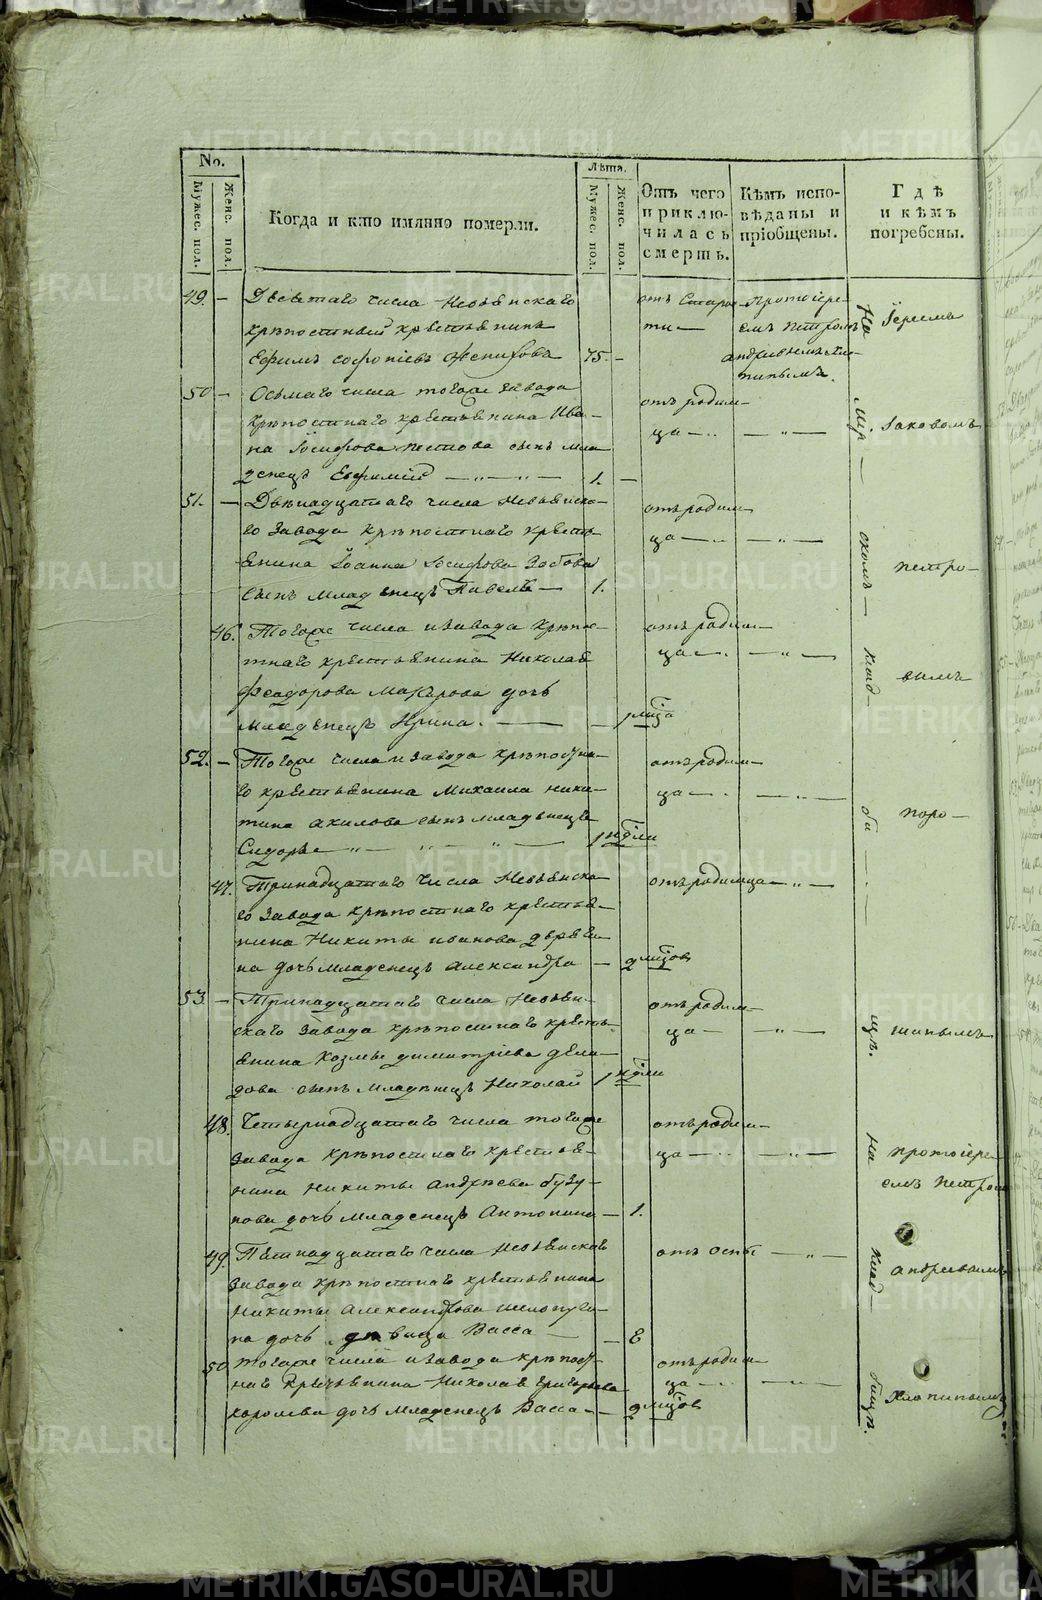 No.
Мужес. пол.
Женс. пол.
Когда и кто имянно померли.
Лѣта.
Мужес. пол.
Женс. пол.
Отъ чего
приклю-
чилась
смерть.
Кѣмъ испо-
вѣданы и
пріобщены.
Гдѣ
и кѣмъ
погребены.
49. — Девятаго числа Невьянскаго
крѣпостный крестьянинъ
Ефимъ 75. —
отъ старос-
ти —
Протоіере-
емъ Петромъ
Андреевымъ Хло-
пинымъ.
50 — Осьмаго числа тогоже завода
крѣпостнаго крестьянина Ива-
на Іосифова сынъ мла-
денецъ Евфимій — „ — „ — 1. —
отъ родим-
ца — „ — „ —
51. — Двѣнадцатаго числа Невьянска-
го завода крѣпостнаго кресть-
янина Іоанна Іосифова Зобова
сынъ младенецъ Павелъ — 1.
отъ родим-
ца — „ — „ —
46. Тогоже числа и завода крѣпос-
тнаго крестьянина Николая
Феодорова Макарова дочь
младенецъ Ирина. — — 1 мѣсца
отъ родим-
ца — „ — „ —
52. — Тогоже числа и завода крѣпостна-
го крестьянина Михаила Ники-
тина Акилова сынъ младенецъ
Сидоръ — „ — „ — „ — 1 нѣдли
отъ родим-
ца — „ — „ —
47. Тринадцатаго числа Невьянска-
го завода крѣпостнаго крестья-
нина Никиты Иванова
на дочь младенецъ Александра — 2 мѣсцов
отъ родимца — „ —
53. — Тринадцатаго числа Невьян-
скаго завода крѣпостнаго кресть-
янина Козмы Димитріева Деми-
дова сынъ младенецъ Николай 1 нѣдли
отъ родим-
ца — „ —
48. Четырнадцатаго числа тогоже
завода крѣпостнаго крестья-
нина Никиты Андреева
нова дочь младенецъ Антонина — 1.
отъ родим-
ца — „ — „ —
49. Пятнадцатаго числа Невьянскаго
завода крѣпостнаго крестьянина
Никиты Александрова
на дочь дѣвица Васса — —
отъ оспы — „ —
50. Тогоже числа и завода крѣпост-
наго крестьянина Николая Григорьева
Королева дочь младенецъ Васса — — 2 мѣсцов
отъ родим-
ца — „ — „ —
На
клад-
би-
щѣ.
На
клад-
бищѣ.
Іереемъ
Іаковомъ
Петро-
вымъ
Протоіере-
емъ Петромъ
Андреевымъ
Хлопинымъ
METRIKI.GASO-URAL.RU